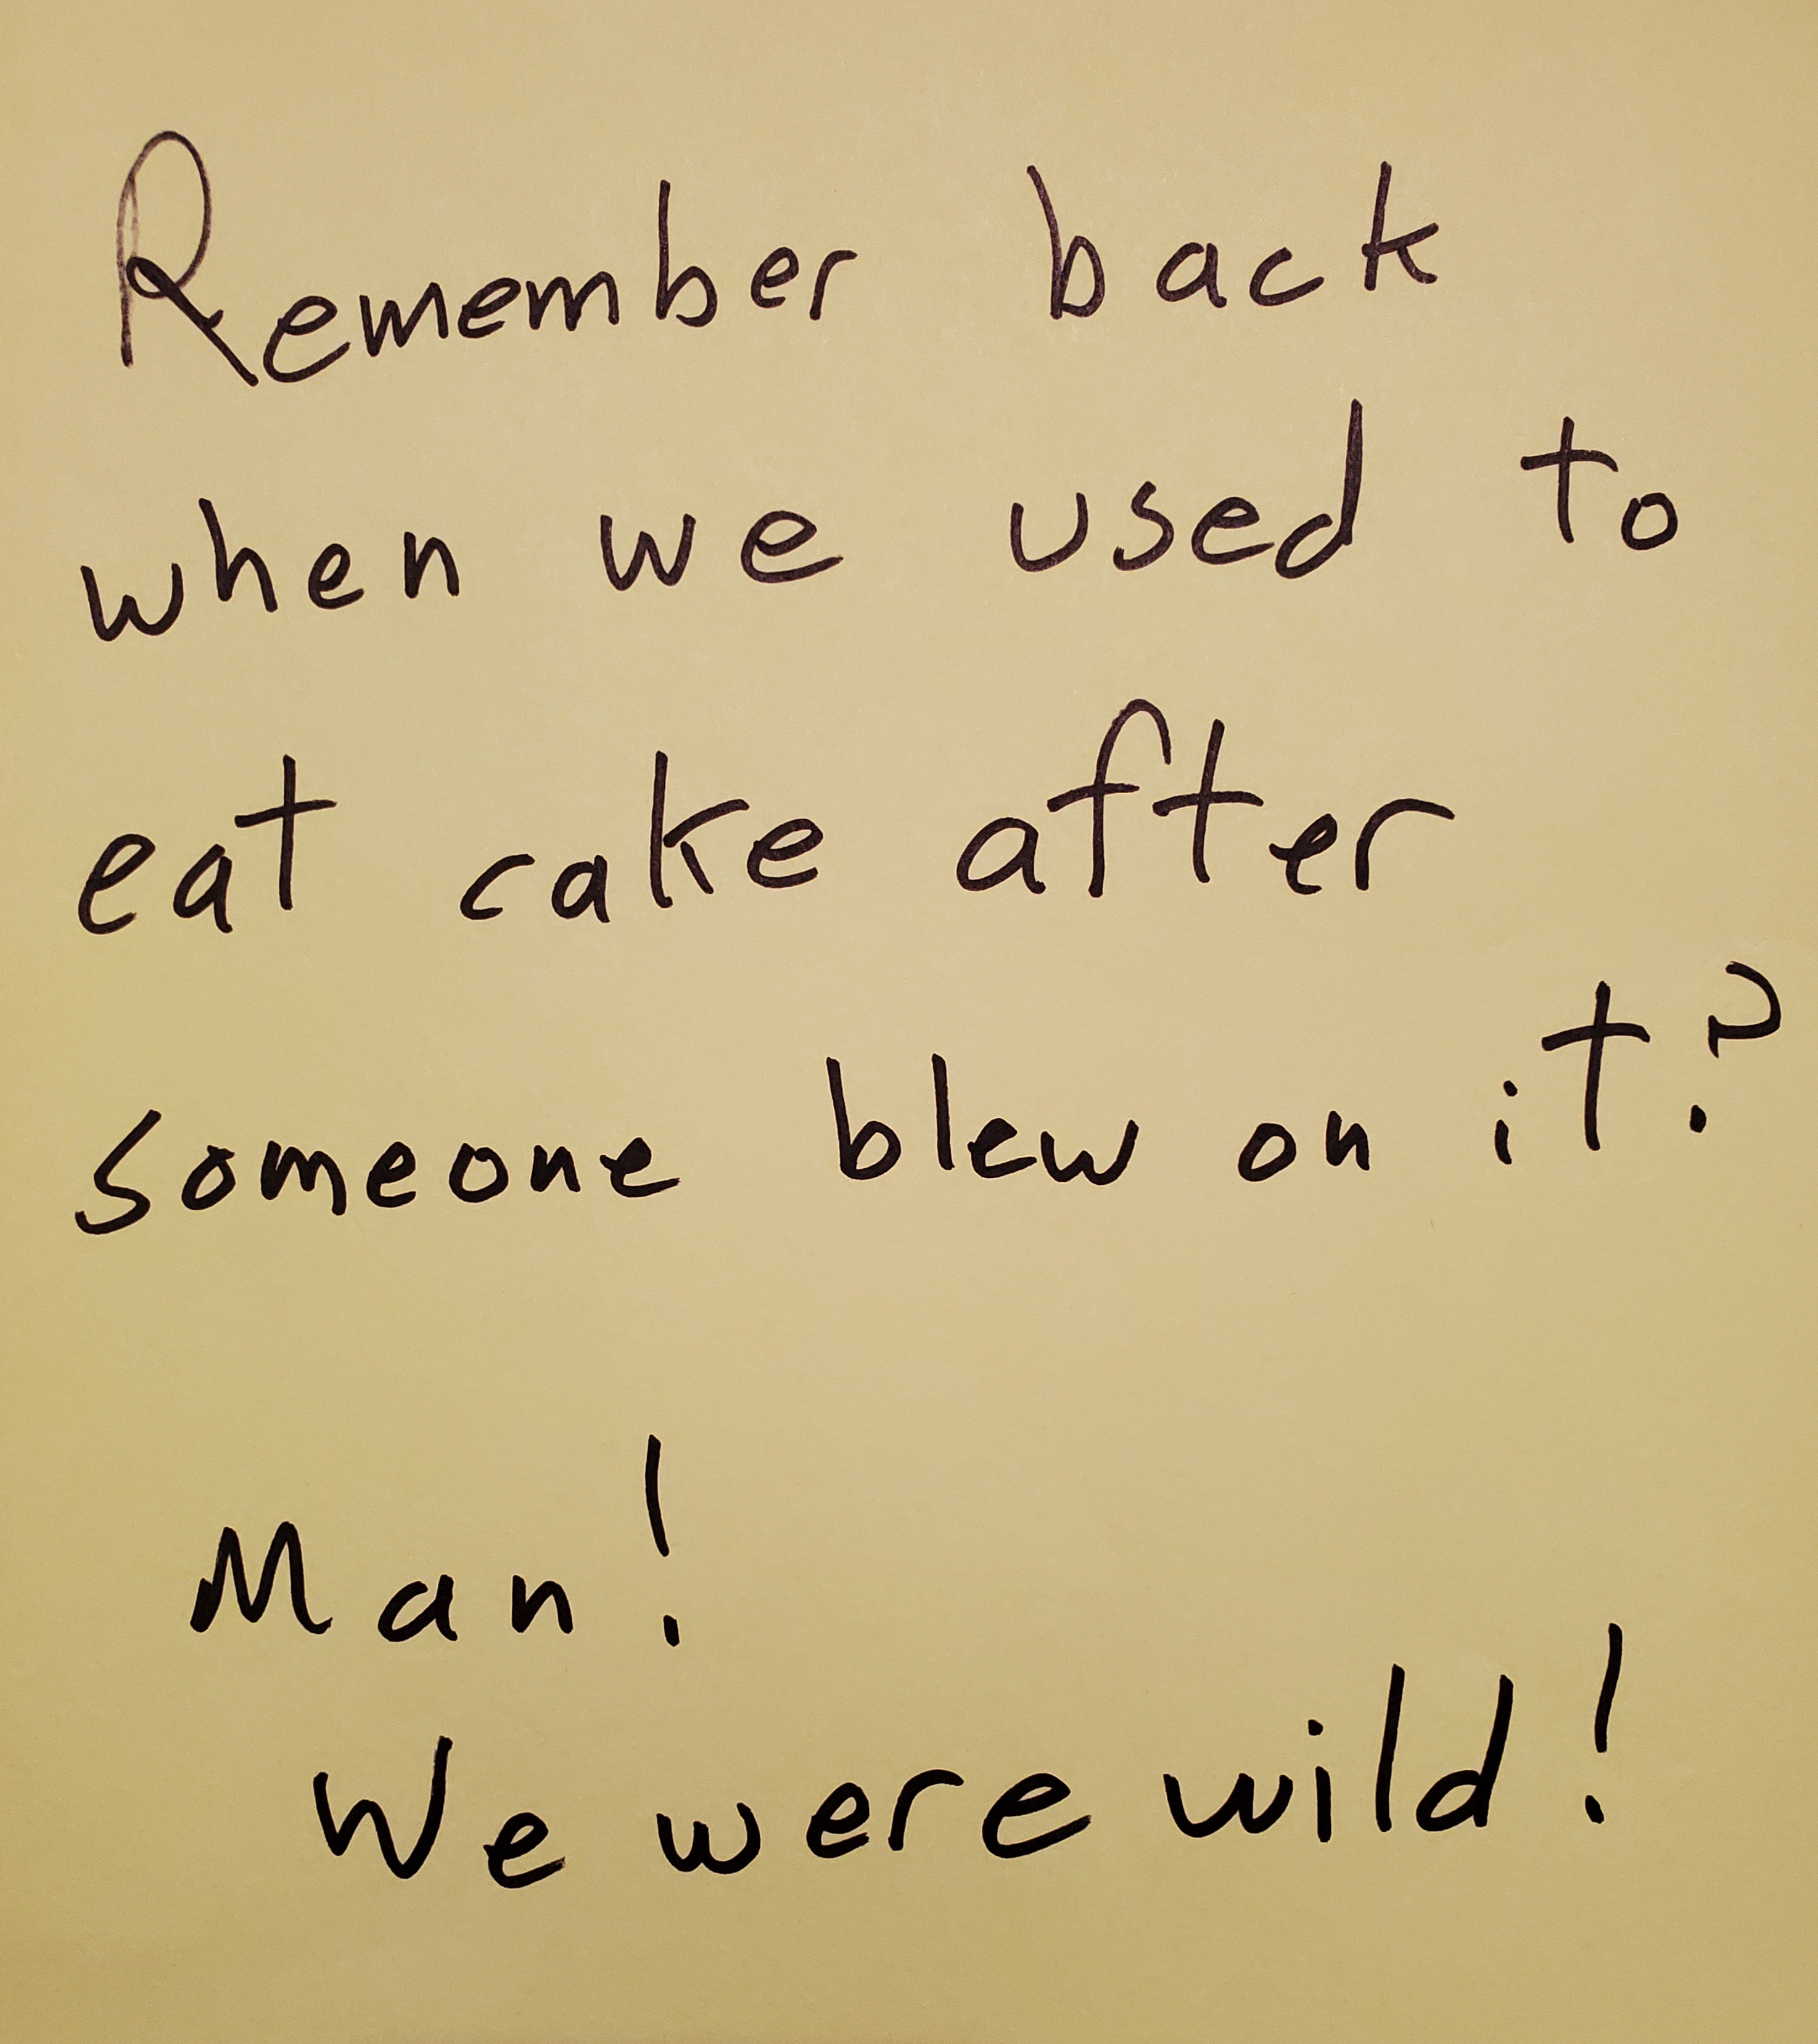 Remember back
when we used to
eat cake after
someone blew on it?
Man!
We were wild!